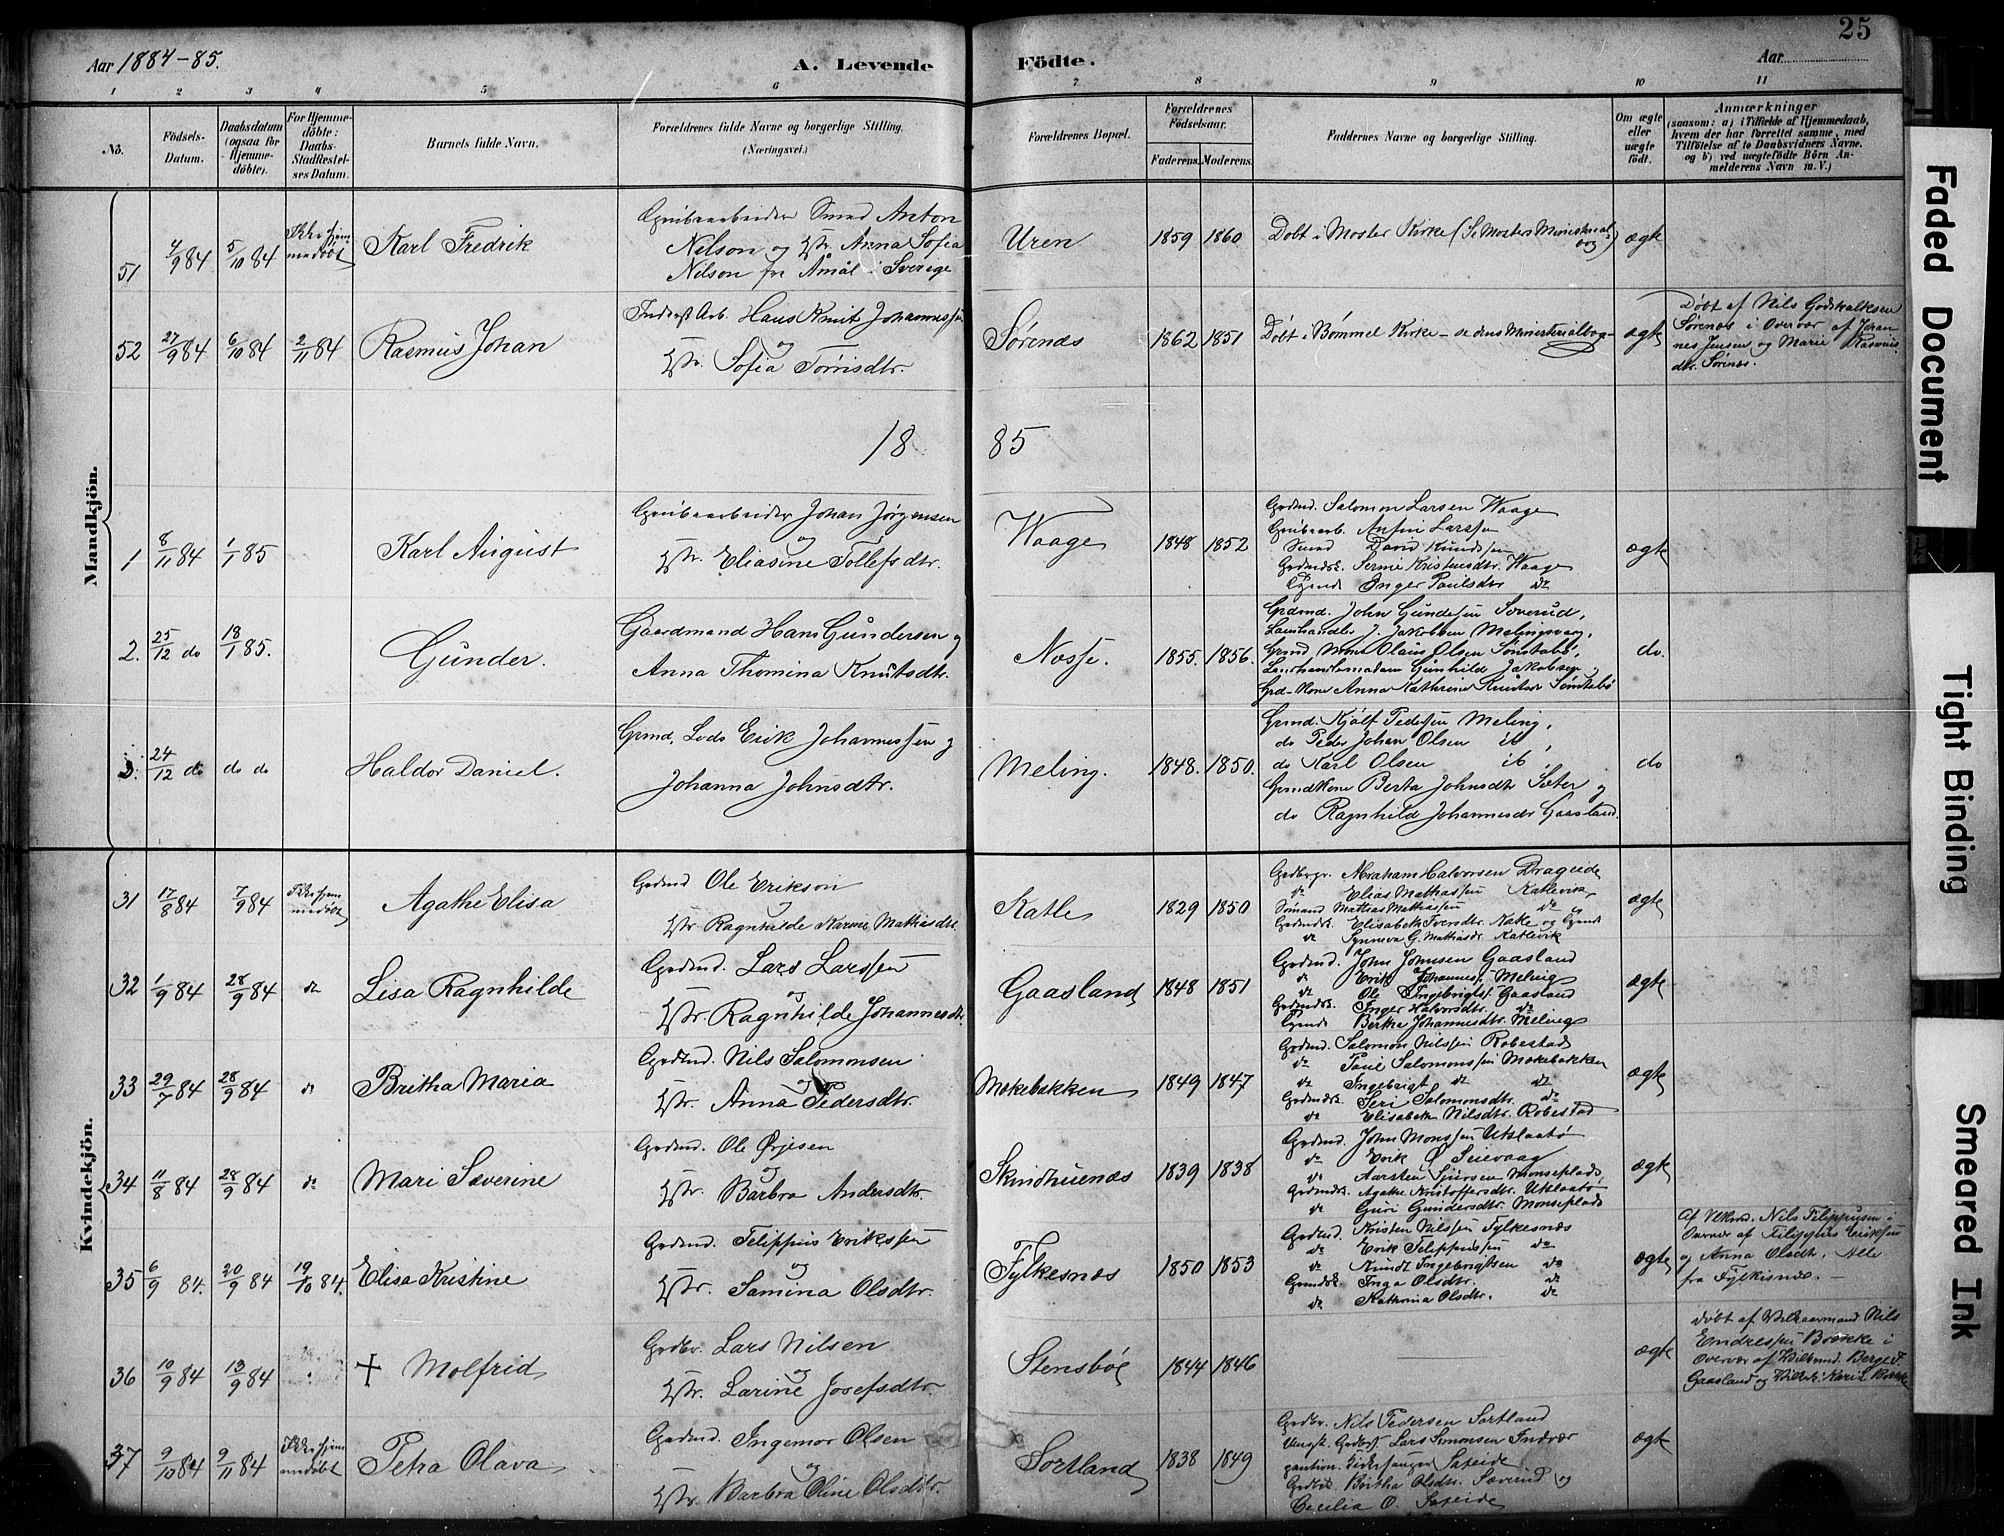 25
Aar 1884-85.
A. Levende Födte.
Aar
1 2 3 4 5 6 7 8 9 10 11
No.
Födsels-Datum.
Daabsdatum (ogsaa for Hjemme-döbte).
For Hjemme-döbte: Daabs-Stadfæstel-ses Datum.
Barnets fulde Navn.
Forældrenes fulde Navne og borgerlige Stilling. (Næringsvei.)
Forældrenes Bopæl.
Forældrenes Födselsaar.
Faderens. Moderens.
Faddernes Navne og borgerlige Stilling.
Om ægte eller uægte födt.
Anmærkninger
(saasom: a) i Tilfælde af Hjemmedaab, hvem der har forrettet samme, med Tilföielse af to Daabsvidners Navne. og b) ved uægtefödte Börn An-melderens Navn m. V.)
Mandkjön.
51 4/9 84 5/10 84 Ikke hjem-medøbt Karl Fredrik
Grubearbeider Smed Anton
Nilson og Hstr. Anna Sofia
Nilson fra Åmål i Sverige
Uren 1859 1860 Døbt i Moster Kirke (Se Mosters Ministerialbog) ægte
52 27/9 84 6/10 84 2/11 84 Rasmus Johan
Inderst Arb. Hans Knut Johannessen
og
Hstr. Sofia Tørrisdtr.
Sørenæs 1862 1851 Døbt i Bømmel Kirke – se dens Ministerialbog – ægte
Døbt af Nils Godskalksen
Sørenæs i Overvær af Johan-
nes Jensen og Marie Rasmus-
dtr. Sørenæs.
18 85
1 8/11 84 1/1 85 Karl August
Grubearbeider Johan Jørgensen
og
Hstr. Eliasine Tollefsdtr.
Waage 1848 1852
Grdmd. Salomon Larsen Waage
Grubearb. Larssen
Smed David Knudssen
Kristensdtr. Waage
Inger Paulsdtr do
ægte
2. 25/12 do 18/1 85. Gunder.
Gaardmand Hans Gundersen og
Anna Thomina Knutsdtr.
Nosse. 1855. 1856.
Grdmd. John Gundersen Sæverud,
Lanhandler J. Jakobsen Melingsvaag,
Olaus Olsen Sønstabø,
Gunhild Jakobsen og
Grd-Kone Anna Kathrine Knutsdr Sønstabø
do.
3. 24/12 do do do Haldor Daniel.
Grmd. Lods Erik Johannessen og
Johanna Johnsdtr.
Meling. 1848. 1850.
Grmd. Kjølf Pedersen Meling,
do Peder Johan Olsen ib,
do Karl Olsen ib,
Grmdkone Berta Johnsdtr Sæter og
do Ragnhild Johannesdr Gaasland.
do
Kvindekjön.
31 17/8 84 7/9 84 Ikke hjem-medøbt Agathe Elisa
Grdmd Ole Erikson
Hstr Ragnhilde Karine Mathiasdtr.
Katle 1829 1850
Abraham Halvorsen Drageide
do Elias Mathiassen Katlevik
Sømand Mathias Mathiassen do
Elisabeth Iversdtr. Nake og
do Synneva G. Mathiasdr Katlevik
ægte
32 1/9 84 28/9 84 do Lisa Ragnhilde
Grdmd. Lars Larssen
og
Hstr. Ragnhilde Johannesdtr.
Gaasland 1848 1851
Grdmd. John Johnsen Gaasland
do Erik Johannes. Meling
do Ole Ingebrigts. Gaasland
Inger Halvorsdtr. do
Bertha Johannesdtr. Meling
ægte
33 29/7 84 28/9 84 do Britha Maria
Grdmd. Nils Salomonsen
og
Hstr. Anna Pedersdtr.
Mækebakken 1849 1847
Grdmd. Salomon Nilssen Robestad
do Paul Salomonssen Mækebakken
do Ingebrigt do do
Seri Salomonsdtr. do
do Elisabeth Nilsdtr. Robestad
ægte
34 11/8 84 28/9 84 do Mari Severine
Grdmd. Ole Ørjesen
og
Hstr. Barbra Andersdtr.
Skindhuenæs 1839 1838
Grdmd. John Monssen Utslaatø
do Erik Ø Seievaag
do Aarsten Sjursen Monseplads
Agathe Kristoffersdtr. Utslaatø
do Guri Gundersdtr. Monseplads
ægte
35 6/9 84. 20/9 84 19/10 84. Elisa Kristine
Grdmd. Filippus Erikssen
og
Hstr. Samina Olsdtr.
Fylkesnæs 1850 1853
Grdmd. Kristen Nilssen Fylkesnæs
do Erik Filippussen do
do Knudt Ingebrigtsen do
Inga Olsdtr. do
do Kathrina Olsdtr. do
ægte
Af Nils Filippusen i
Overvær af Filippus Erikssen
og Anna Olsdtr. Alle
fra Fylkesnæs. –
36 10/9 84 13/9 84 † Molfrid
Grdbr. Lars Nilsen
og
Hstr. Larine Josefsdtr.
Stensbøe 1844 1846 ægte
Døbt af Nils
Endressen Brække i
Overvær af Berge T.
Gaasland og Kari L Brække
37 9/10 84 9/11 84 Ikke hjem-medøbt Petra Olava
Grdmd. Ingemor Olsen
og
Hstr. Barbra Oline Olsdtr.
Sortland 1838 1849
Grdbr. Nils Pedersen Sortland
Ungk. Lars Simonsen Indvær
Sæteide
Britha Olsdtr. Sæverud og
Cecilia O. Sæteide
ægte
Faded Document
Tight Binding
Smeared Ink